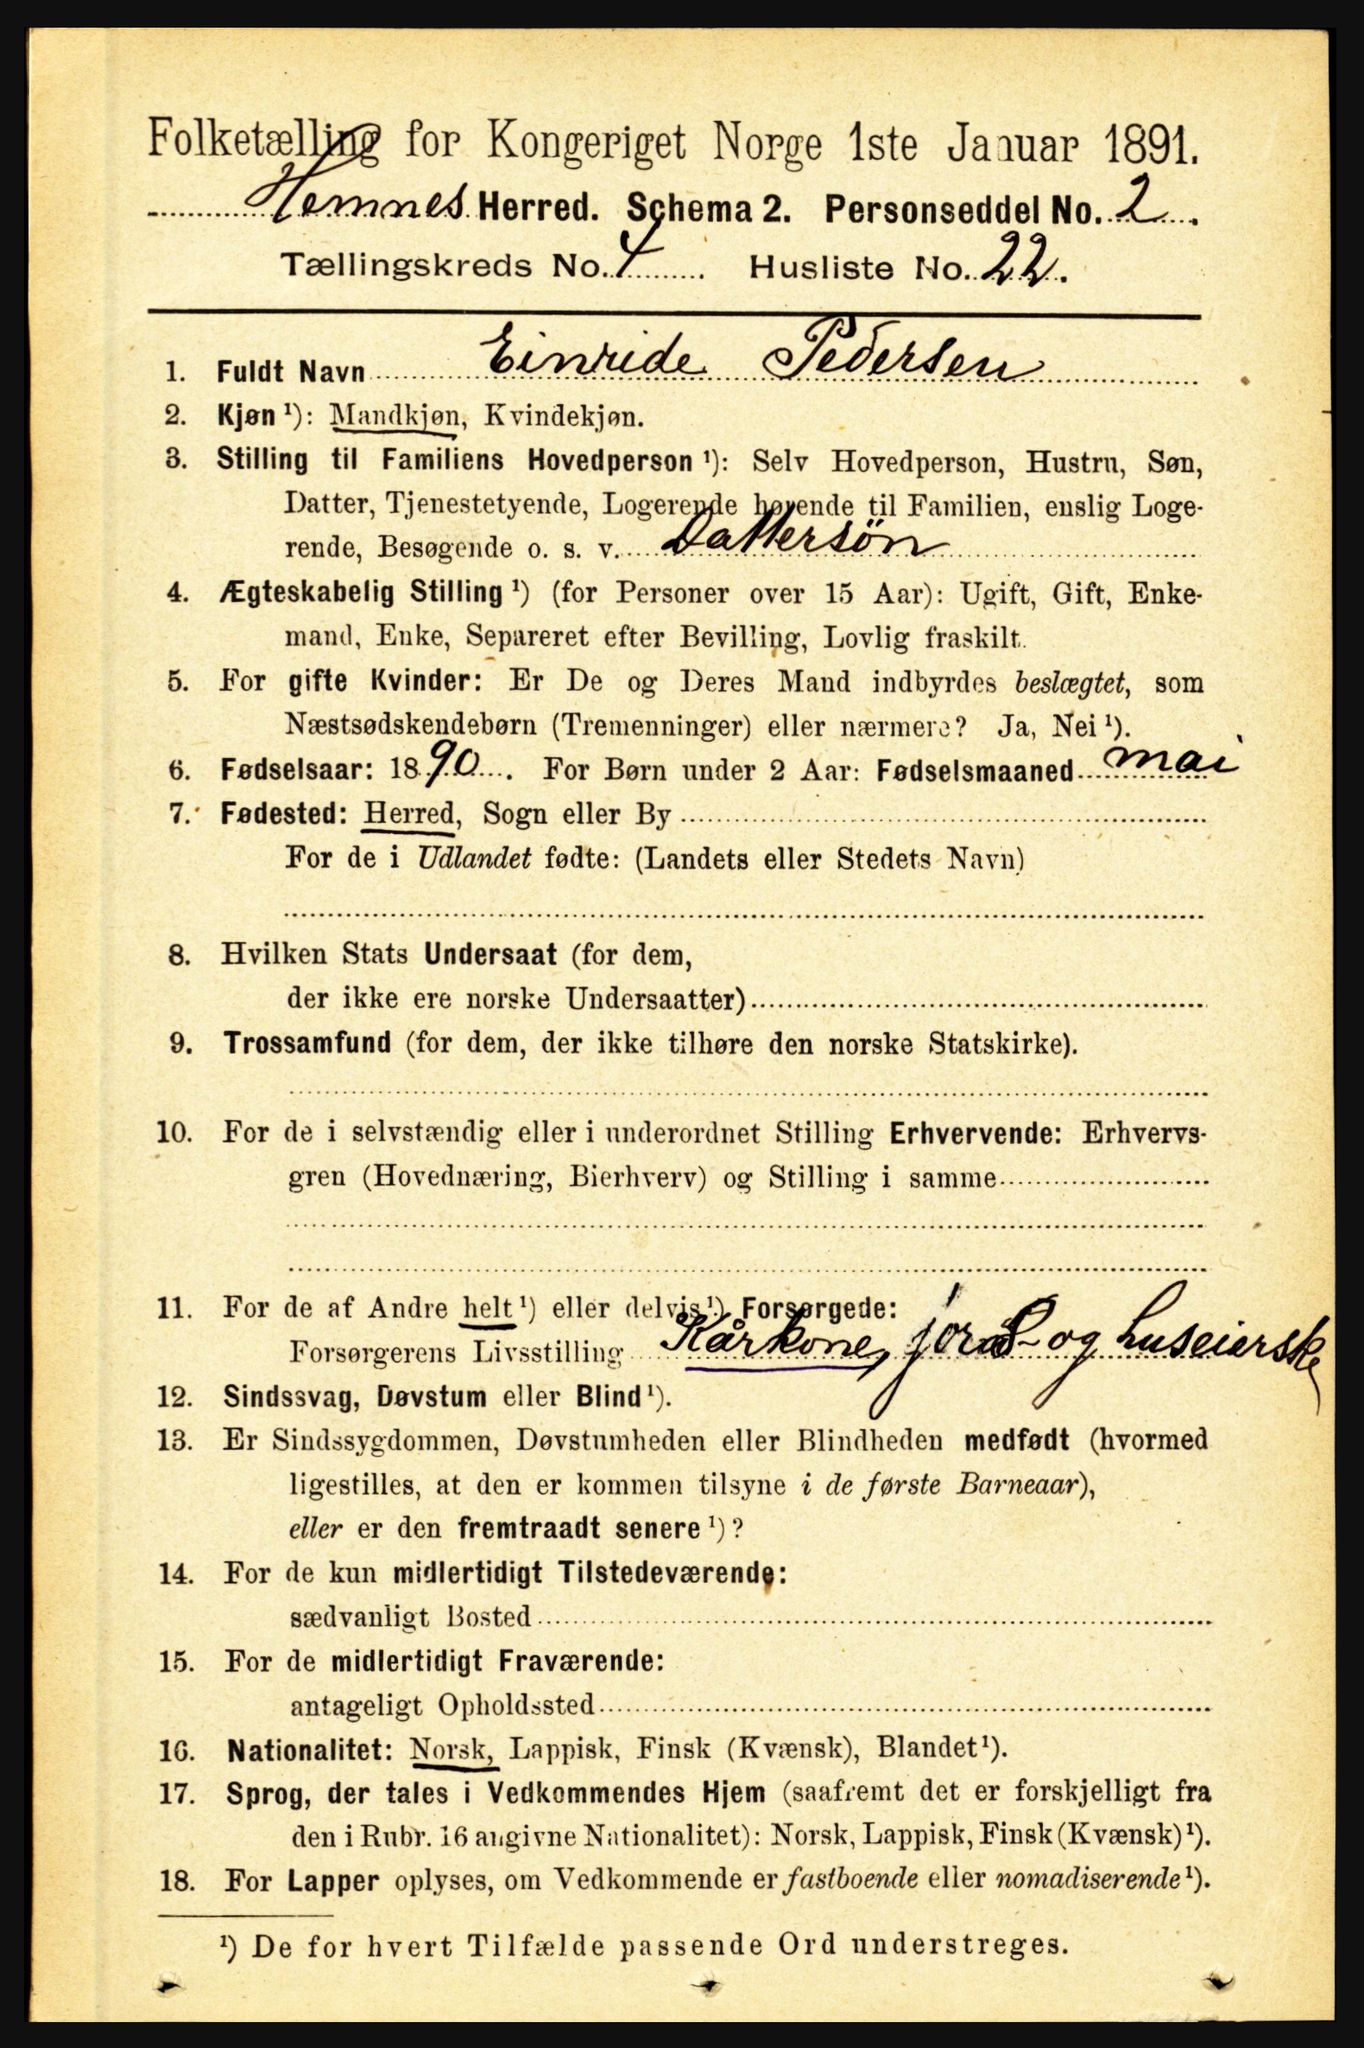 Folketælling for Kongeriget Norge 1ste Januar 1891.
Hemnes Herred. Schema 2. Personseddel No. 2.
Tællingskreds No. 4 Husliste No. 22.
1. Fuldt Navn Einride Pedersen
2. Kjøn¹): Mandkjøn, Kvindekjøn.
3. Stilling til Familiens Hovedperson¹): Selv Hovedperson, Hustru, Søn,
Datter, Tjenestetyende, Logerende hørende til Familien, enslig Loge-
rende, Besøgende o. s. v. Dattersön
4. Ægteskabelig Stilling¹) (for Personer over 15 Aar): Ugift, Gift, Enke-
mand, Enke, Separeret efter Bevilling, Lovlig fraskilt.
5. For gifte Kvinder: Er De og Deres Mand indbyrdes beslægtet, som
Næstsødskendebørn (Tremenninger) eller nærmere? Ja, Nei¹).
6. Fødselsaar: 1890. For Børn under 2 Aar: Fødselsmaaned mai
7. Fødested: Herred, Sogn eller By
For de i Udlandet fødte: (Landets eller Stedets Navn)
8. Hvilken Stats Undersaat (for dem,
der ikke ere norske Undersaatter)
9. Trossamfund (for dem, der ikke tilhøre den norske Statskirke).
10. For de i selvstændig eller i underordnet Stilling Erhvervende: Erhvervs-
gren (Hovednæring, Bierhverv) og Stilling i samme
11. For de af Andre helt¹) eller delvis¹) Forsørgede:
Forsørgerens Livsstilling Kårkone, jord- og huseierske
12. Sindssvag, Døvstum eller Blind¹).
13. Er Sindssygdommen, Døvstumheden eller Blindheden medfødt (hvormed
ligestilles, at den er kommen tilsyne i de første Barneaar),
eller er den fremtraadt senere¹)?
14. For de kun midlertidigt Tilstedeværende:
sædvanligt Bosted
15. For de midlertidigt Fraværende:
antageligt Opholdssted
16. Nationalitet: Norsk, Lappisk, Finsk (Kvænsk), Blandet¹).
17. Sprog, der tales i Vedkommendes Hjem (saafremt det er forskjelligt fra
den i Rubr. 16 angivne Nationalitet): Norsk, Lappisk, Finsk (Kvænsk)¹).
18. For Lapper oplyses, om Vedkommende er fastboende eller nomadiserende¹).
¹) De for hvert Tilfælde passende Ord understreges.